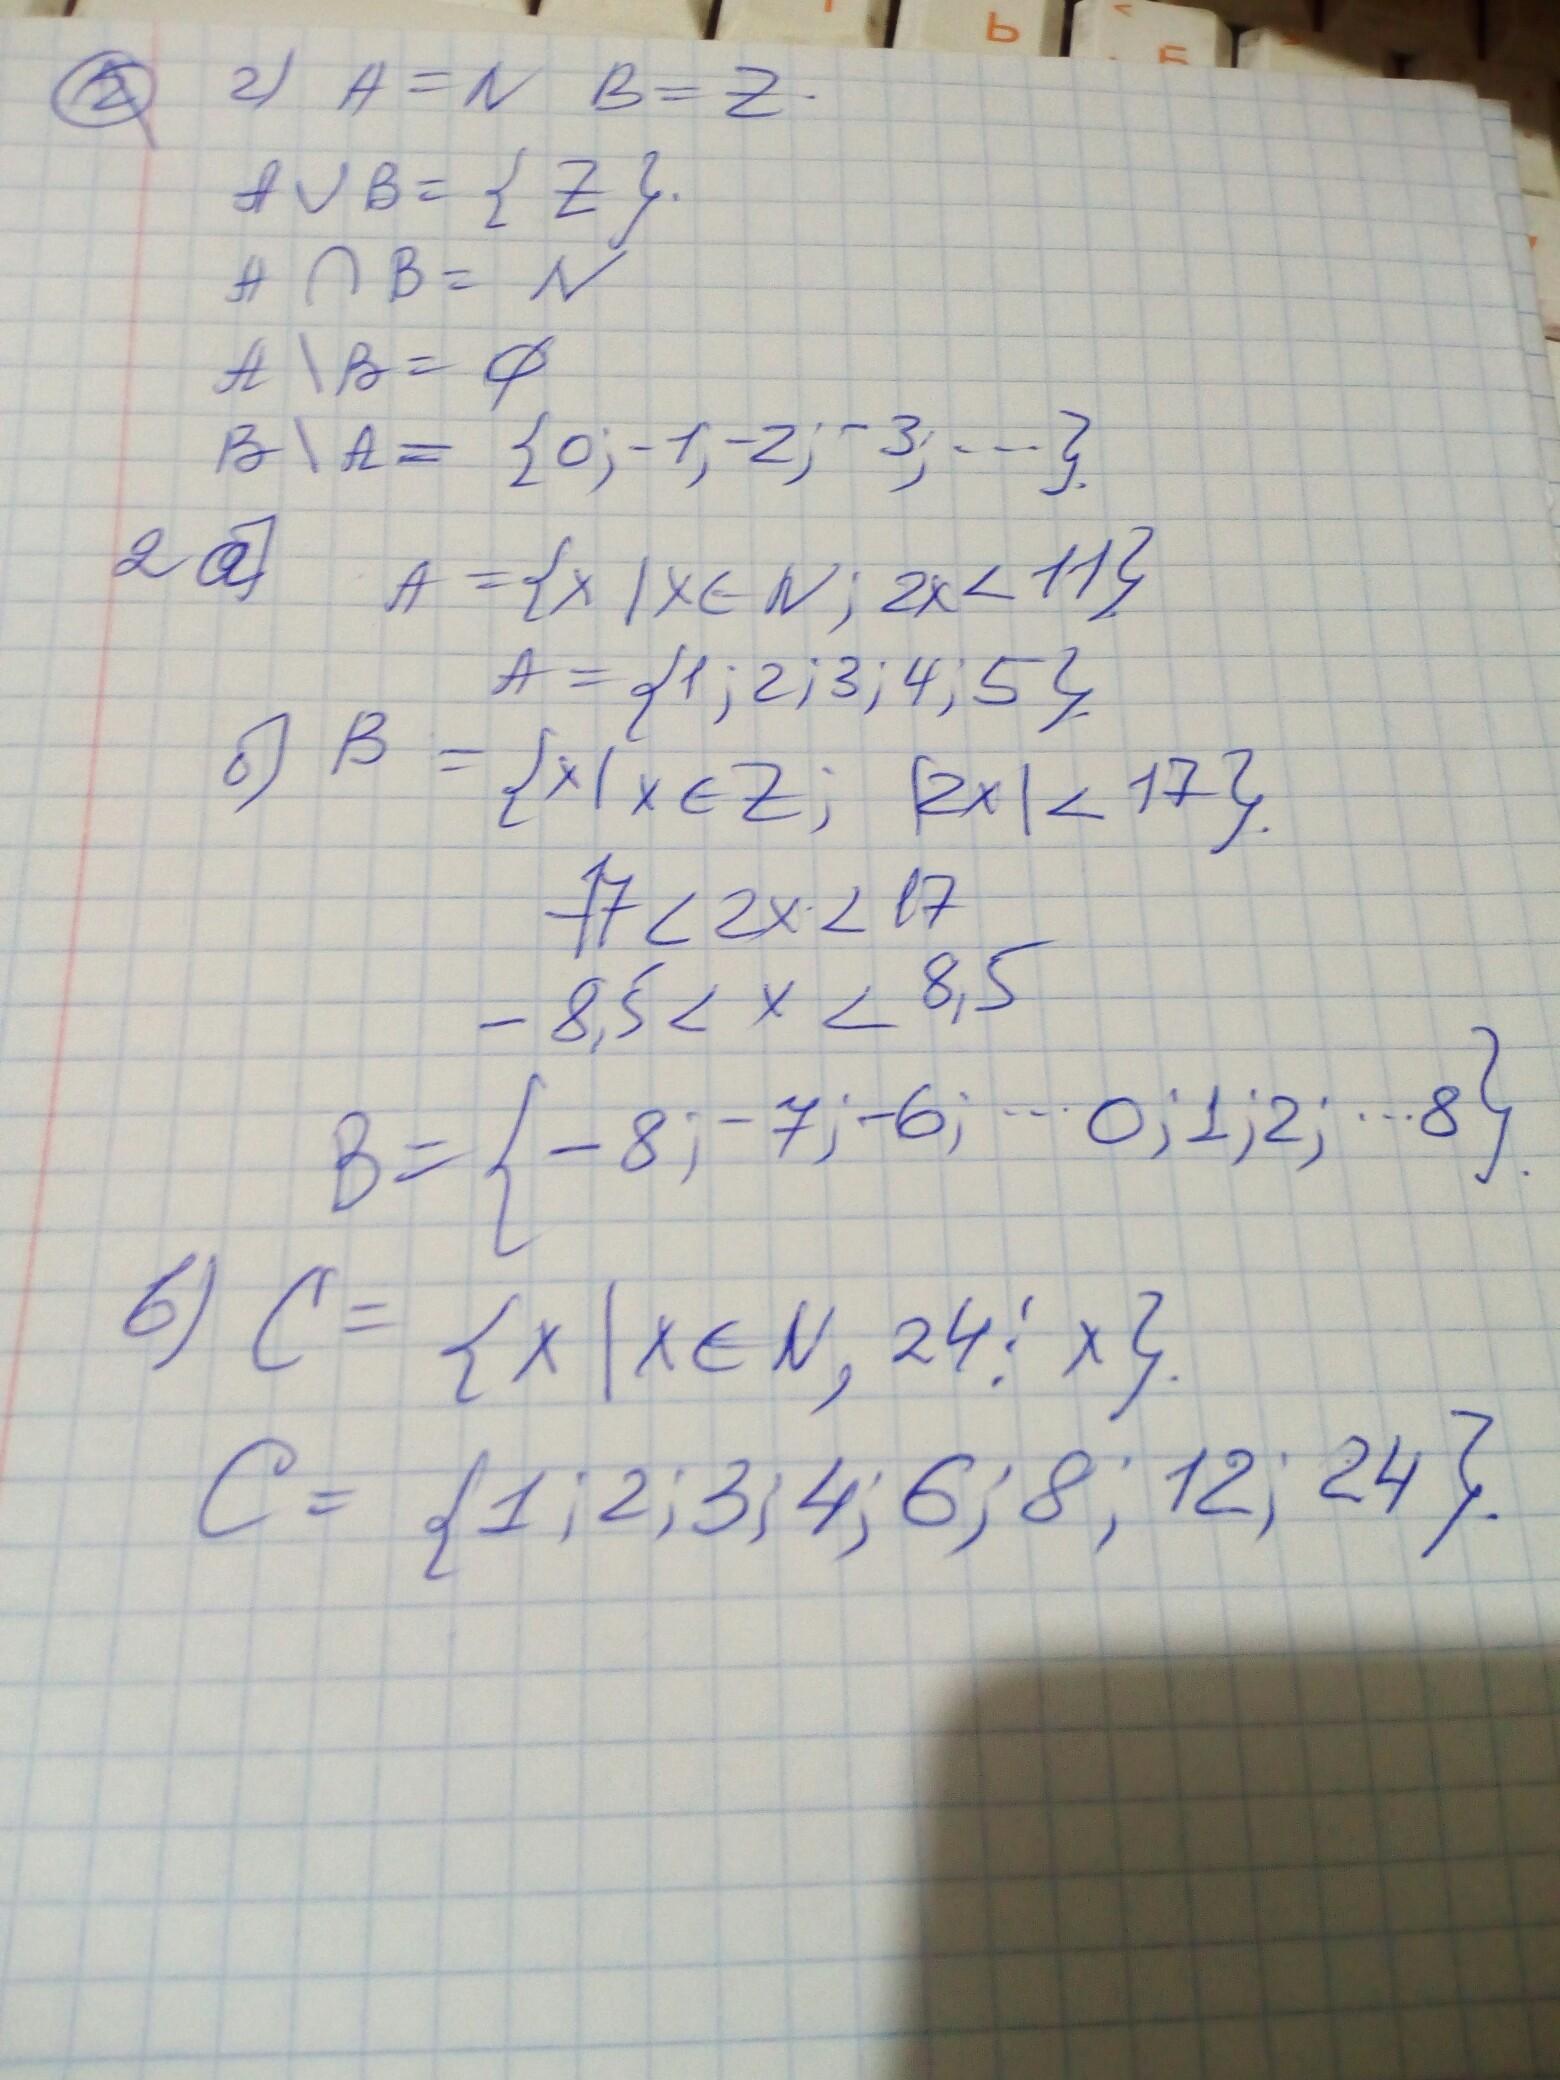 г) A = N B = Z.
A ∪ B = { Z }.
A ∩ B = N
A \ B = ∅
B \ A = {0; -1; -2; -3; ...}.
2 а) A = {x | x ∈ N; 2x < 11}
A = {1; 2; 3; 4; 5}.
б) B = {x | x ∈ Z; |2x| < 17}.
-17 < 2x < 17
-8,5 < x < 8,5
B = {-8; -7; -6; ... 0; 1; 2; ... 8}.
в) C = {x | x ∈ N, 24 ⋮ x}.
C = {1; 2; 3; 4; 6; 8; 12; 24}.